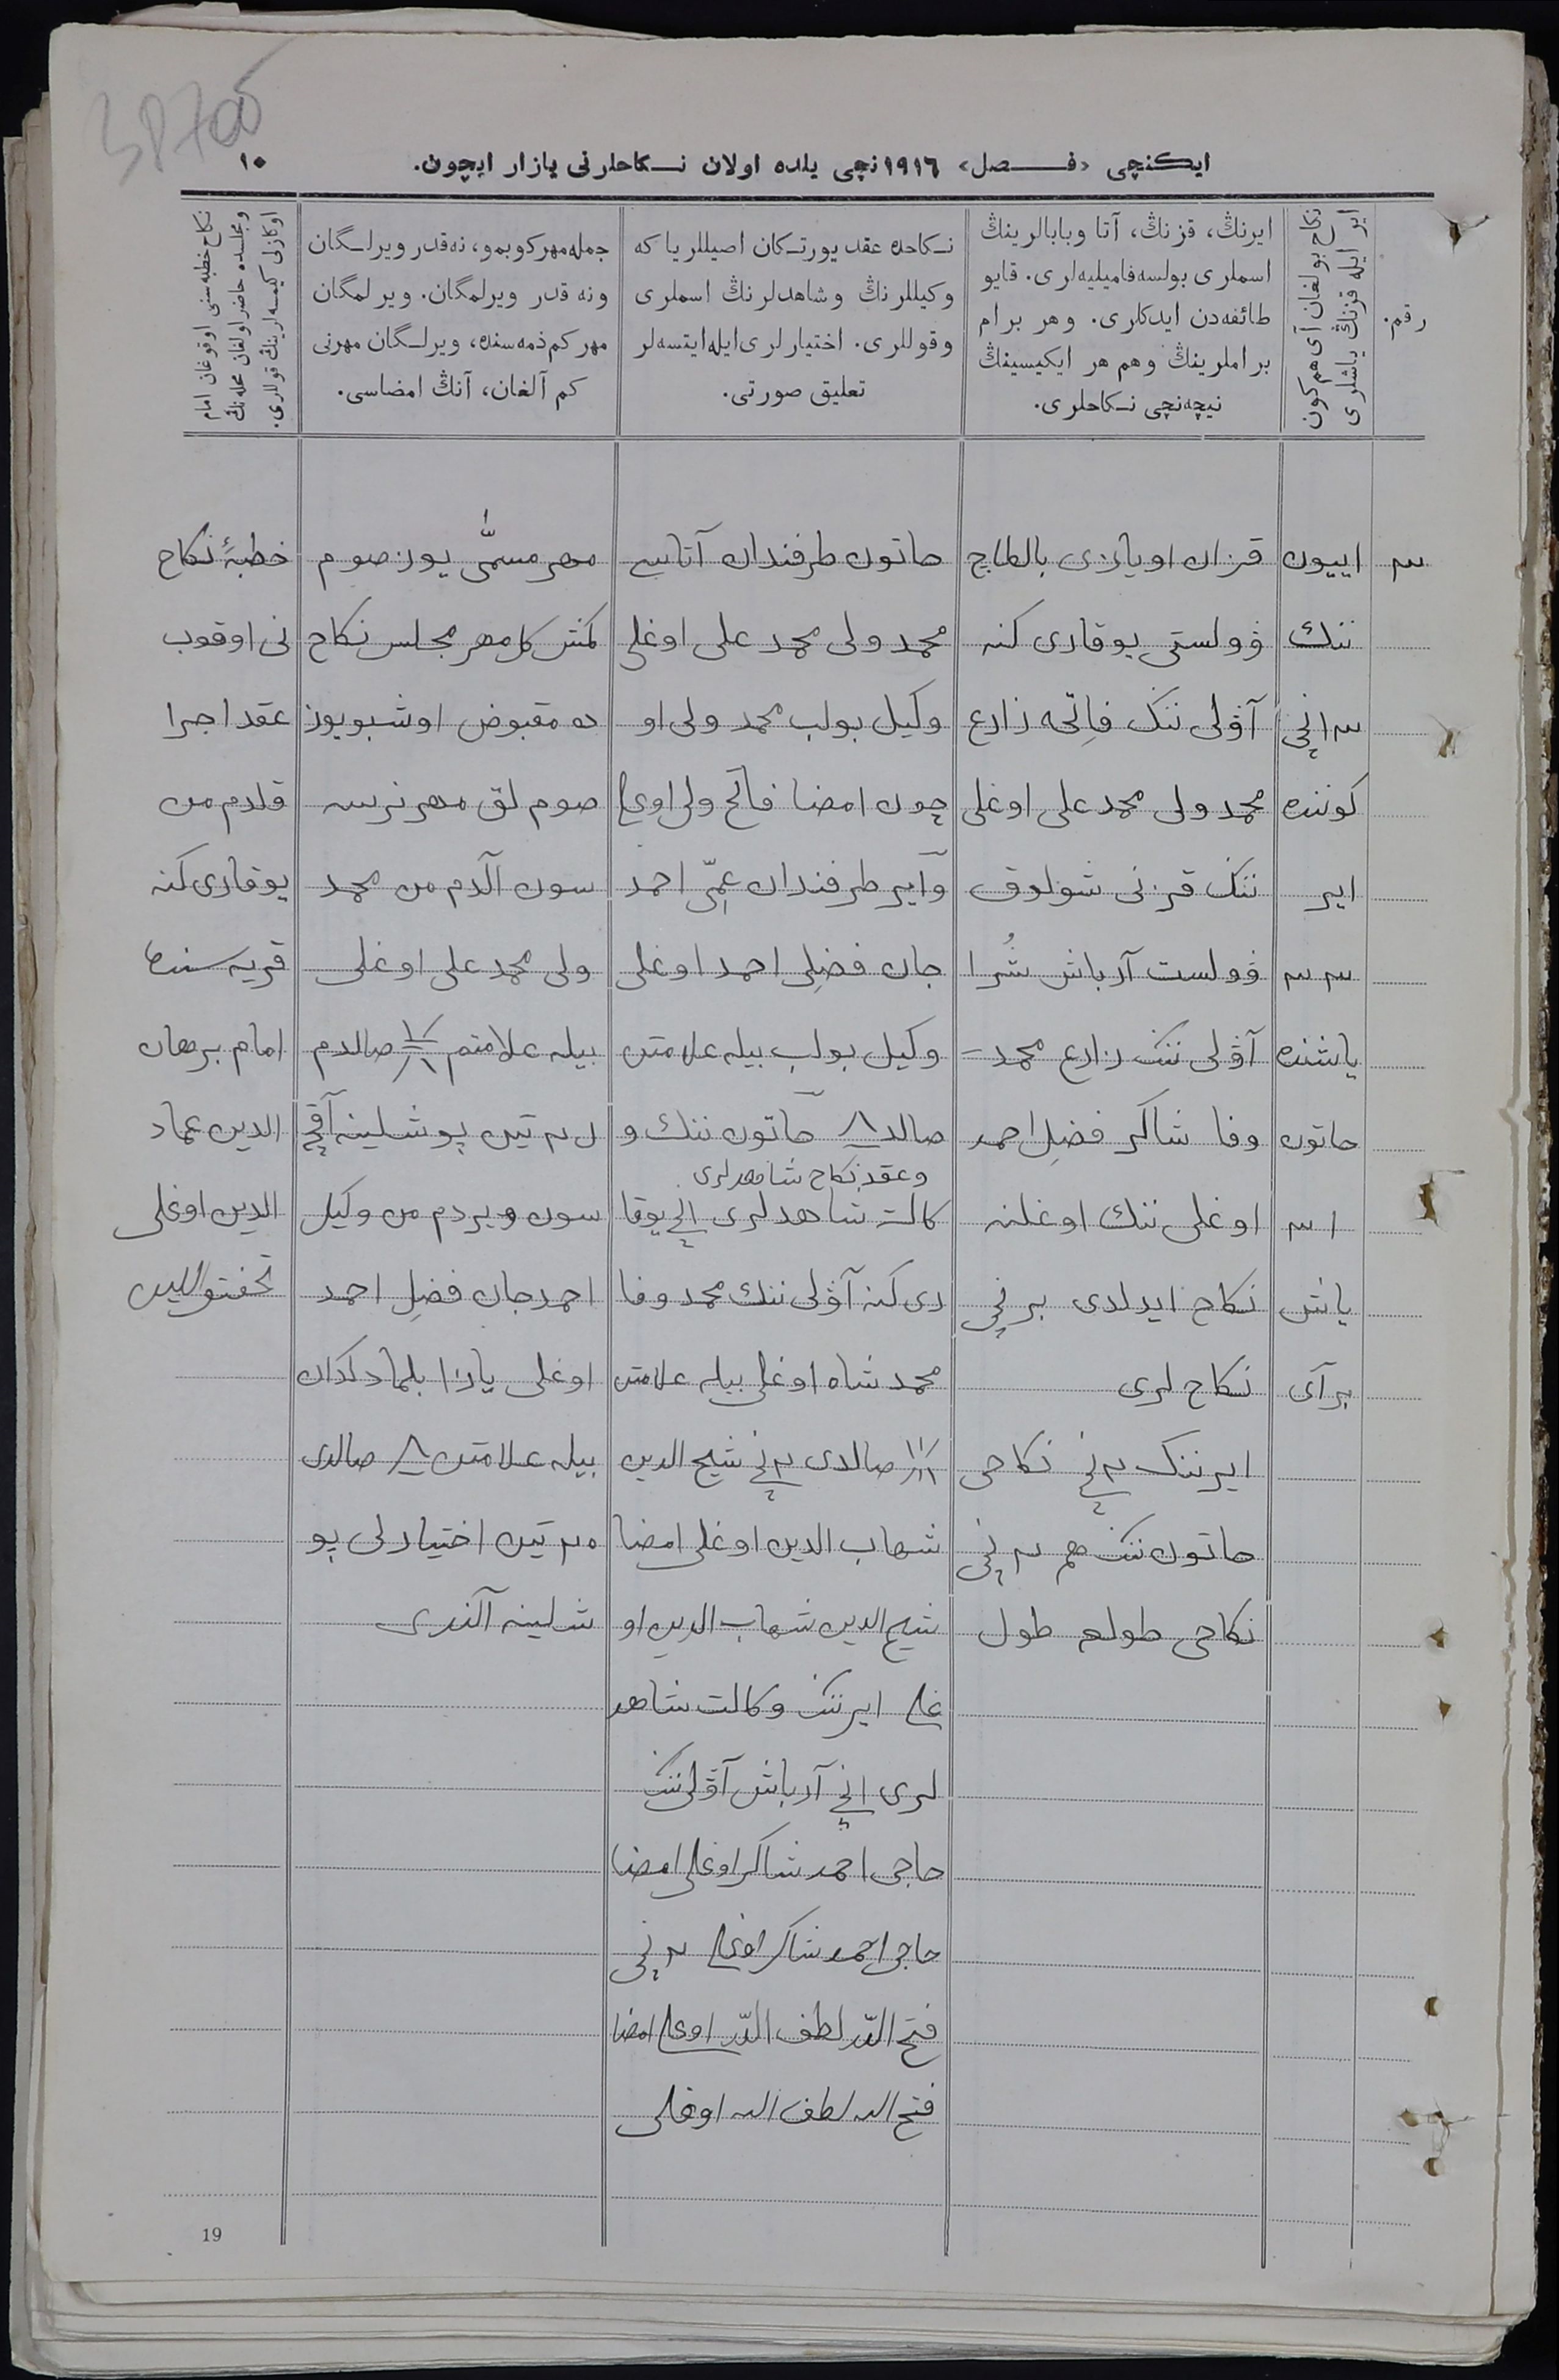 ایکنچی «فصل» ١٩١٦نچی یلده اولان نکاحلرنی یازار ایچون.
١٠
رقم.
نکاح بولغان آی هم کون
ایر ایله قزنڭ یاشلری
ایرنڭ، قزنڭ، آتا وبابالرینڭ
اسملری بولسه فامیلیه‌لری. قایو
طائفه‌دن ایدکلری. وهر برام
براملرینڭ وهم هر ایکیسینڭ
نیچه‌نچی نکاحلری.
نکاحده عقد یورتکان اصیللر یا که
وکیللرنڭ وشاهدلرنڭ اسملری
وقوللری. اختیارلری ایله ایتسه‌لر
تعلیق صورتی.
جمله مهر کوبمو، نه‌قدر ویرلگان
ونه قدر ویرلمگان. ویرلمگان
مهر کم ذمه‌سنده، ویرلگان مهرنی
کم آلغان، آنڭ امضاسی.
نکاح خطبه‌سنی اوقوغان امام
ومجلسده حاضر اولغان محله‌نڭ
اوکازنی کیمسه‌لرینڭ قوللری.
٣
اییون
ننك
٣ انچی
کوننده
ایر
٣٣
یاشنده
خاتون
٣١
یاش
بر آی
قزان اویازی بالطاچ
ڤولستی یوقاری کنه
آڤلی ننك فاتحه زارع
محمد ولی محمد علی اوغلی
ننك قزنی شولوق
ڤولست آرباش شُرا
آڤلی ننك زارع محمد
وفا شاکر فضل احمد
اوغلی ننك اوغلنه
نکاح ایدلدی برنچی
نکاح لری
ایرننك ٢نچی نکاحی
خاتون ننك هم ٢نچی
نکاحی طولهم طول
خاتون طرفندان آتاسی
محمد ولی محمد علی اوغلی
وکیل بولب محمد ولی او
چون امضا فاتح ولی اوغلی
وآیر طرفندان عمّی احمد
جان فضل احمد اوغلی
وکیل بولب بیله علامتن
صالدی خاتون ننك و
وعقد نکاح شاهدلری
کالت شاهدلری انچی یوقا
ری کنه آڤلی ننك محمد وفا
محمد شاه اوغلی بیله علامتن
صالدی ٢نچی شیخ الدین
شهاب الدین اوغلی امضا
شیخ الدین شهاب الدین او
غلی ایرننك وکالت شاهد
لری انچی آرباش آڤلی ننك
حاجی احمد شاکر اوغلی امضا
حاجی احمد شاکر اوغلی ٢نچی
فتح الله لطف الله اوغلی امضا
فتح الله لطف الله اوغلی
مهر مسمّی یوز صوم
کمش کل مهر مجلس نکاح
ده مقبوض اوشبو یوز
صوم لق مهر نرسه
سون آلدم من محمد
ولی محمد علی اوغلی
بیله علامتم صالدم
تین پوشلینه آقچه
سون ویردم من وکیل
احمد جان فضل احمد
اوغلی یازا بلمادکدان
بیله علامتن صالدی
تین اختیارلی پو
شلینه آلندی
خطبهٔ نکاح
نی اوقوب
عقد اجرا
قلدم من
یوقاری کنه
قریه سنده
امام برهان
الدین عماد
الدین اوغلی
19